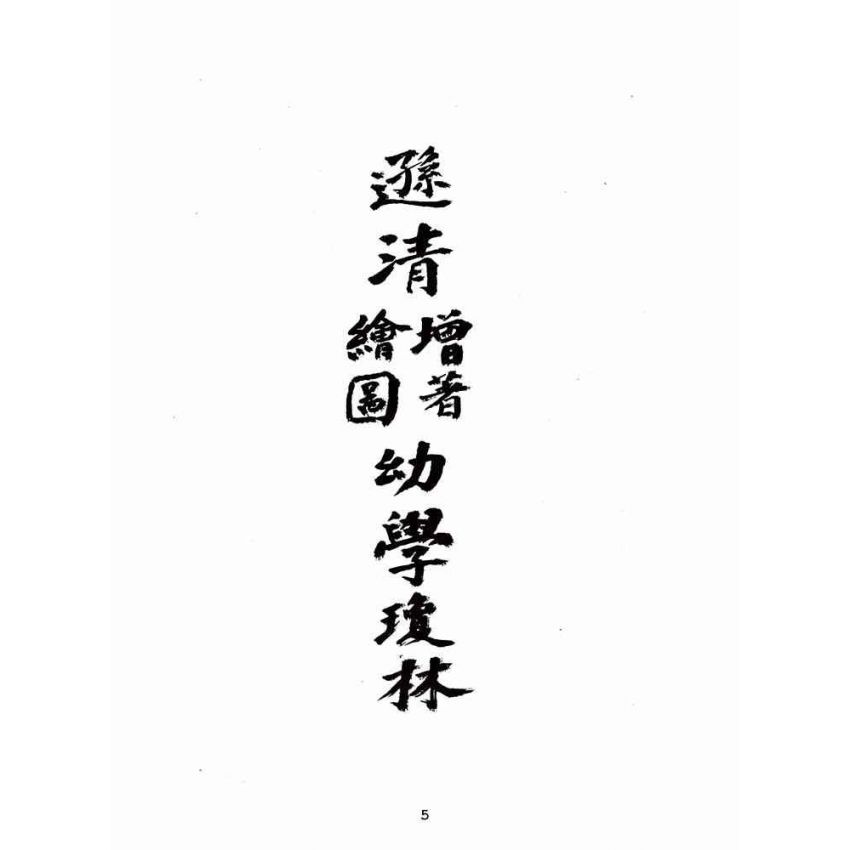 遜清
增著
繪圖
幼學瓊林
5